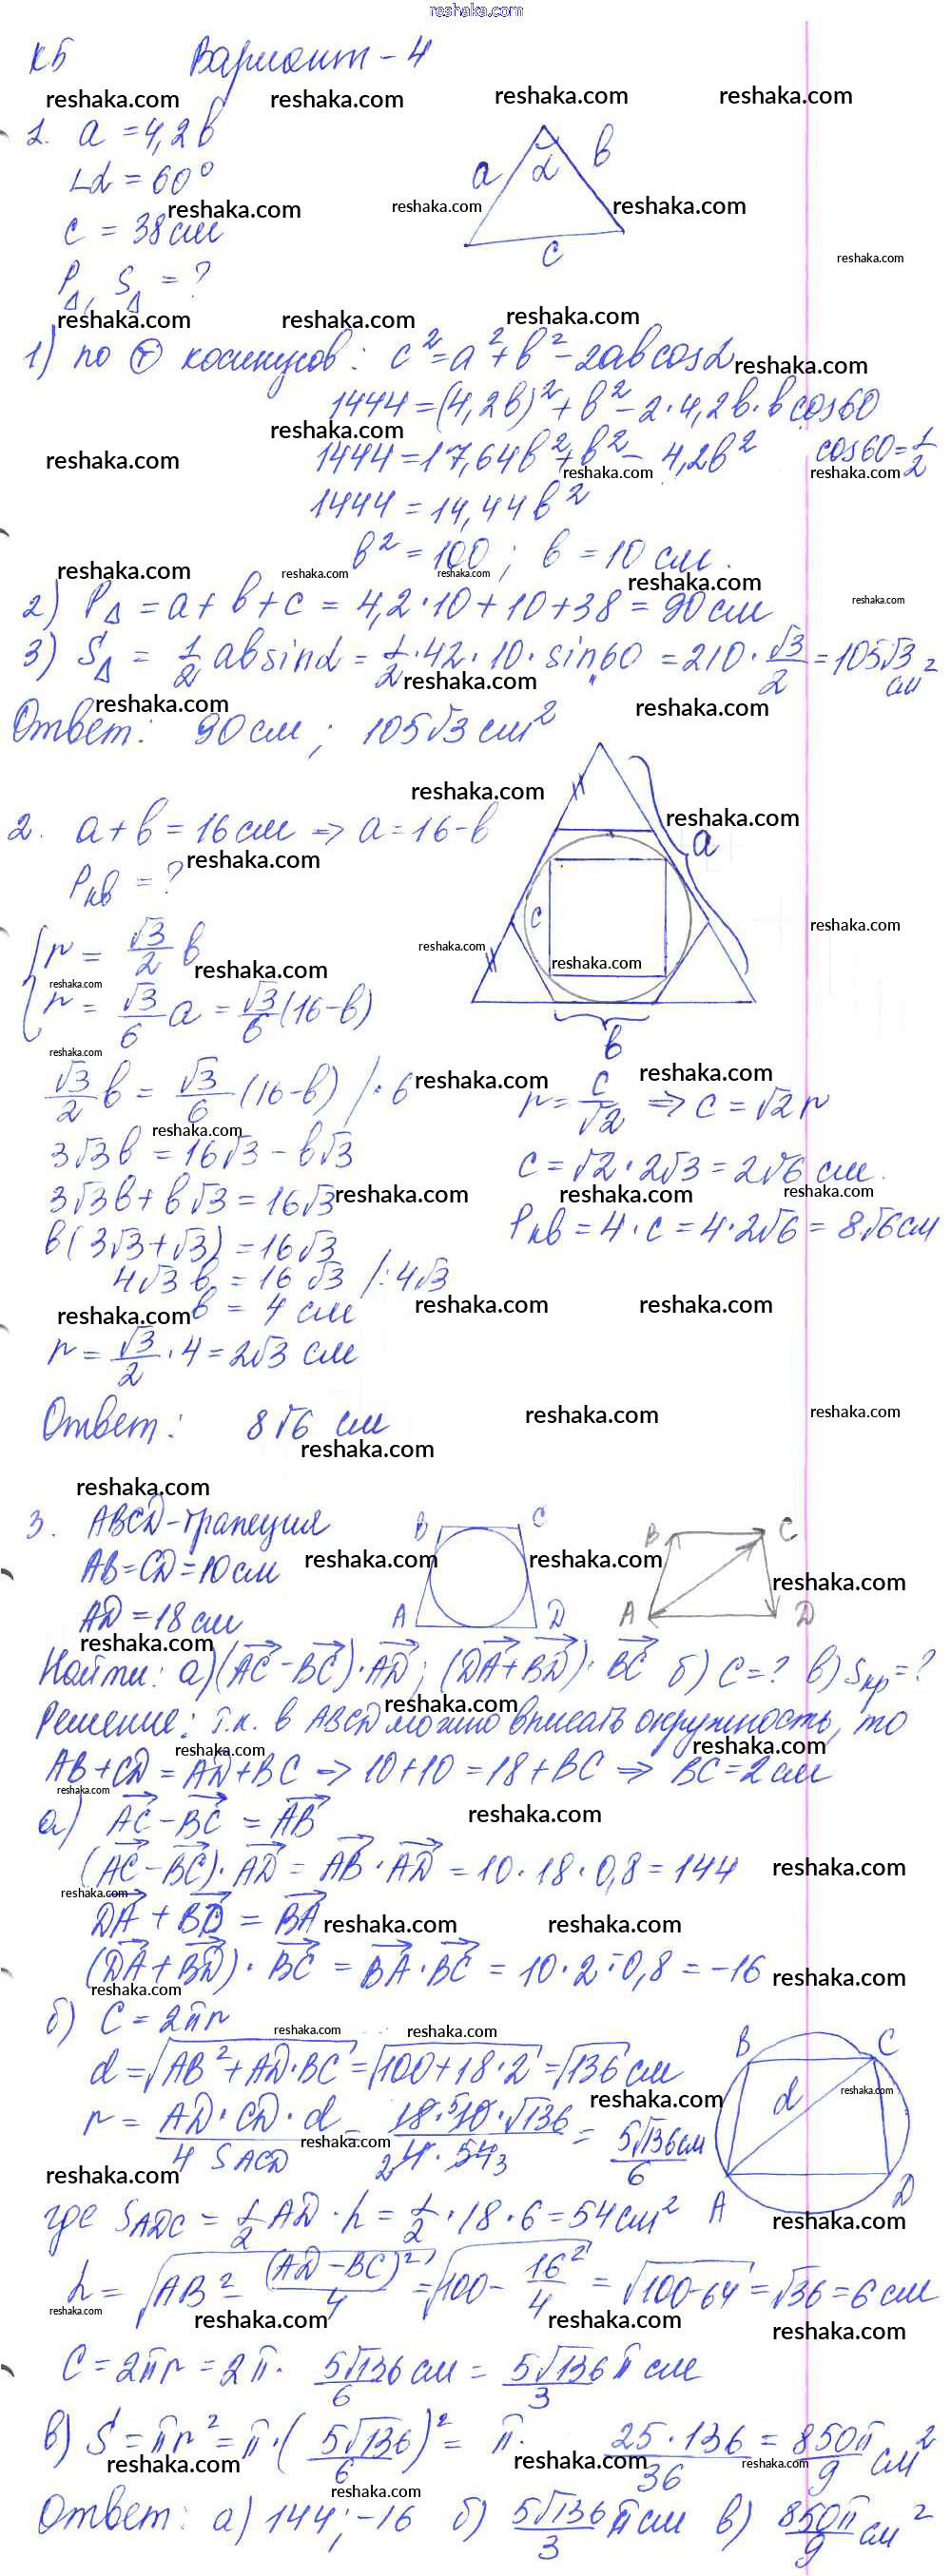 reshaka.com
К5 Вариант - 4
1. a = 4,2b
∠α = 60°
c = 38 см
P△, S△ = ?
a α b
c
1) по т косинусов: c² = a² + b² - 2ab cos α
1444 = (4,2b)² + b² - 2·4,2b·b cos60
1444 = 17,64b² + b² - 4,2b² cos60 = 1/2
1444 = 14,44b²
b² = 100; b = 10 см.
2) P△ = a + b + c = 4,2·10 + 10 + 38 = 90 см
3) S△ = 1/2 ab sin α = 1/2·42·10·sin60 = 210·√3/2 = 105√3 см²
Ответ: 90 см; 105√3 см²
2. a + b = 16 см ⇒ a = 16 - b
Pкв = ?
a
c
b
{ r = √3/2 b
{ r = √3/6 a = √3/6 (16-b)
√3/2 b = √3/6 (16-b) /·6
3√3b = 16√3 - b√3
3√3b + b√3 = 16√3
b(3√3 + √3) = 16√3
4√3 b = 16√3 /:4√3
b = 4 см
r = √3/2 · 4 = 2√3 см
r = c/√2 ⇒ c = √2 r
c = √2·2√3 = 2√6 см.
Pкв = 4·c = 4·2√6 = 8√6 см
Ответ: 8√6 см
3. ABCD - трапеция
AB = CD = 10 см
AD = 18 см
B C
A D
B C
A D
Найти: а) (AC - BC)·AD; (DA + BD)·BC б) C = ? в) Sкр = ?
Решение: т.к. в ABCD можно вписать окружность, то
AB + CD = AD + BC ⇒ 10 + 10 = 18 + BC ⇒ BC = 2 см
а) AC - BC = AB
(AC - BC)·AD = AB·AD = 10·18·0,8 = 144
DA + BD = BA
(DA + BD)·BC = BA·BC = 10·2·-0,8 = -16
б) C = 2πr
d = √(AB² + AD·BC) = √(100 + 18·2) = √136 см
r = AD·CD·d / 4 SACD = 18·10·√136 / 4·54 = 5√136 см / 6
B C
d
A D
где SADC = 1/2 AD·h = 1/2·18·6 = 54 см²
h = √(AB² - (AD - BC)²/4) = √(100 - 16²/4) = √(100 - 64) = √36 = 6 см
C = 2πr = 2π· 5√136/6 см = 5√136/3 π см
в) S = πr² = π·(5√136/6)² = π· 25·136/36 = 850π/9 см²
Ответ: а) 144; -16 б) 5√136/3 π см в) 850π/9 см²